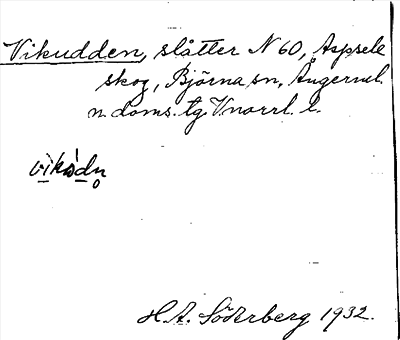 Vikudden, slåtter N 60, Aspsele
skog, Björna sn, Ångermel.
n. doms. tg. Vnorrl. l.
vìksdn̥
H.A. Söderberg 1932.